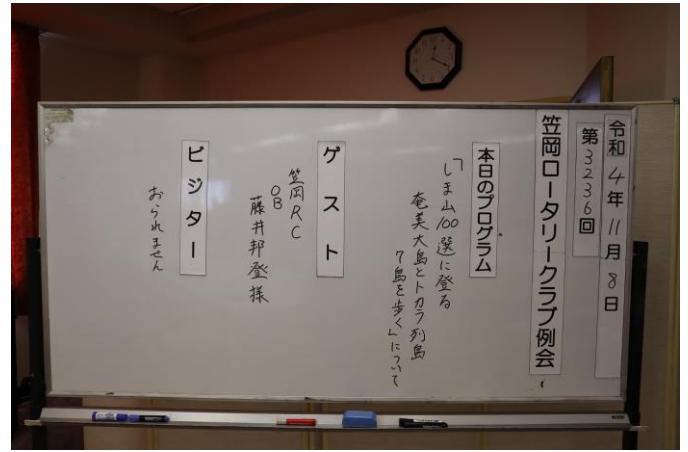 令和4年11月8日
第3236回
笠岡ロータリークラブ例会
本日のプログラム
「しま山100選に登る
奄美大島とトカラ列島
7島を歩く」について
ゲスト
笠岡RC
OB
藤井邦登様
ビジター
おられません